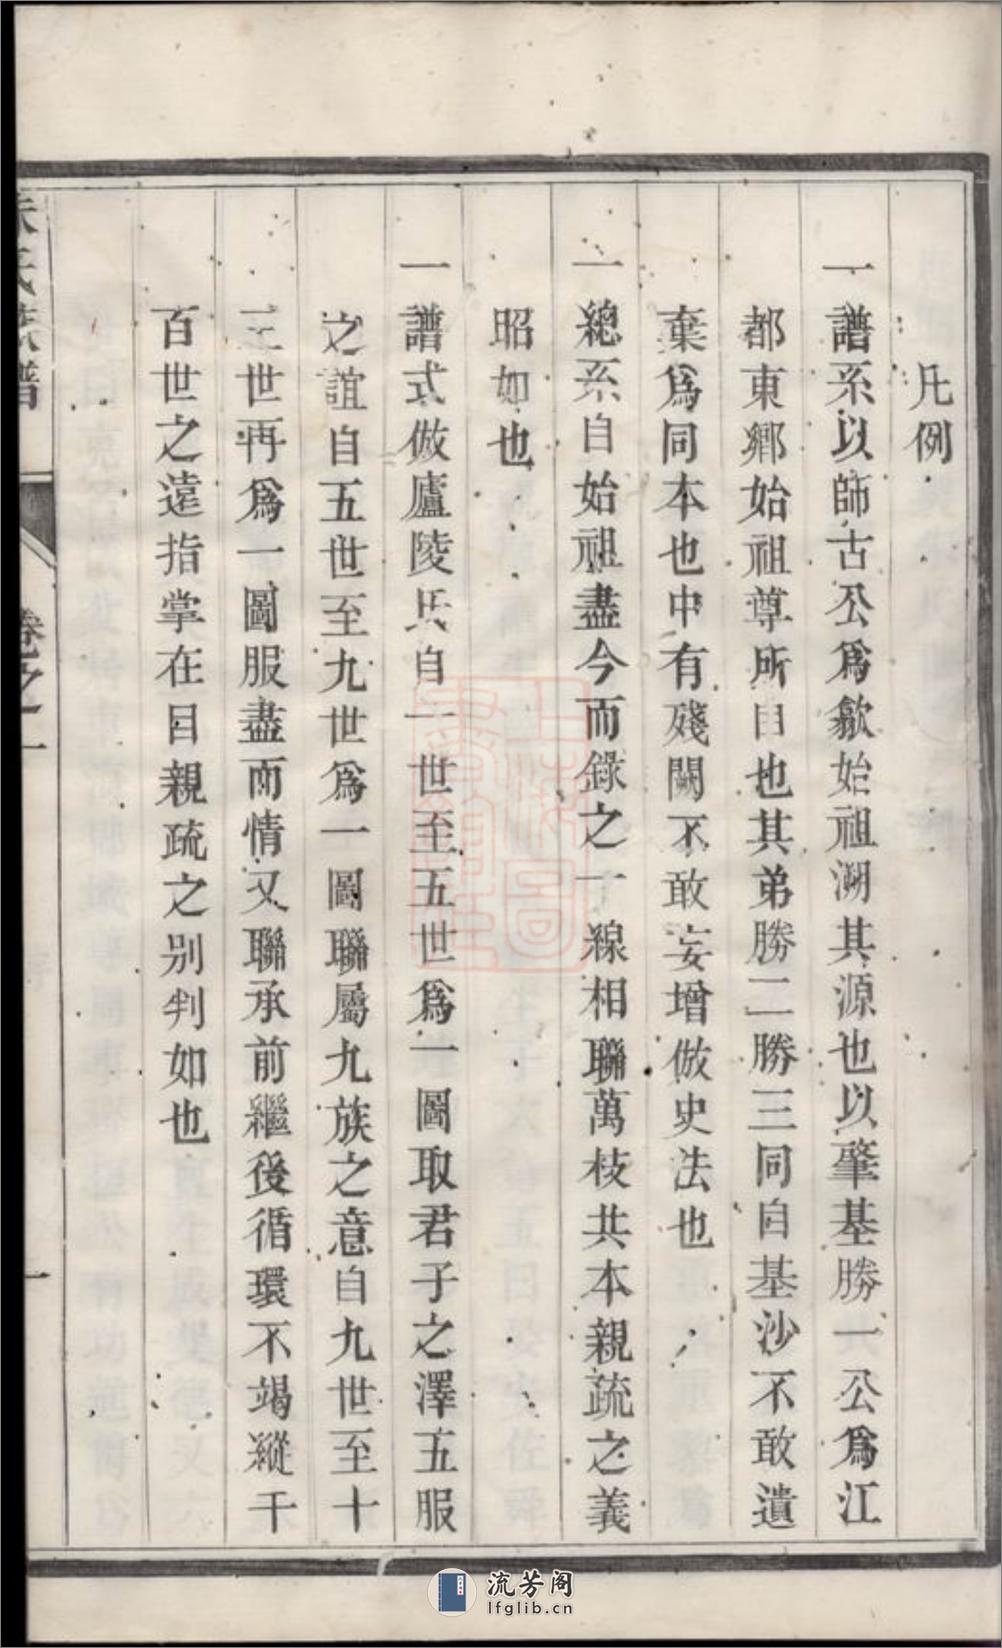 凡例
一譜系以師古公爲歙始祖溯其源也以肇基勝一公爲江
都東鄉始祖尊所自也其弟勝二勝三同自基沙不敢遺
棄爲同本也中有殘闕不敢妄增倣史法也
一總系自始祖盡今而錄之一線相聯萬枝共本親疏之義
昭如也
一譜式倣廬陵氏自一世至五世爲一圖取君子之澤五服
之誼自五世至九世爲一圖聯屬九族之意自九世至十
三世再爲一圖服盡而情又聯承前繼後循環不竭縱千
百世之遠指掌在目親疏之别判如也
氏族譜
卷之一
一
流芳阁
lfglib.cn